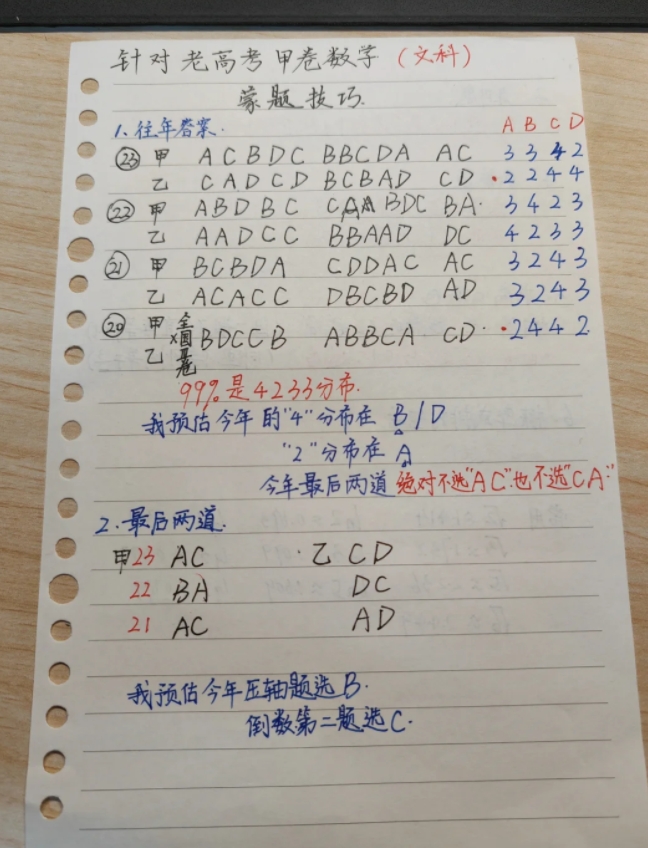 针对老高考甲卷数学（文科）
蒙题技巧.
1.往年答案.
A B C D
㉓ 甲 ACBDC BBCDA AC 3 3 4 2
乙 CADCD BCBAD CD ·2 2 4 4
㉒ 甲 ABDBC C BDC BA· 3 4 2 3
乙 AADCC BBAAD DC 4 2 3 3
㉑ 甲 BCBDA CDDAC AC 3 2 4 3
乙 ACACC DBCBD AD 3 2 4 3
⑳ 甲 乙 全国 卷 BDCCB ABBCA CD· ·2 4 4 2
99%是4233分布.
我预估今年的"4"分布在 B/D
"2"分布在 A
今年最后两道绝对不选"AC".也不选"CA".
2.最后两道.
甲23 AC ·乙 CD
22 BA DC
21 AC AD
我预估今年压轴题选B.
倒数第二题选C.